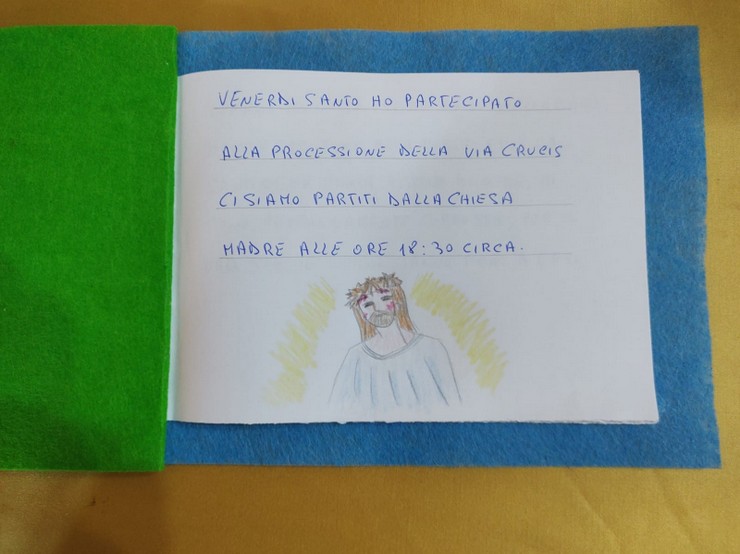 VENERDI SANTO HO PARTECIPATO
ALLA PROCESSIONE DELLA VIA CRUCIS
CI SIAMO PARTITI DALLA CHIESA
MADRE ALLE ORE 18:30 CIRCA.